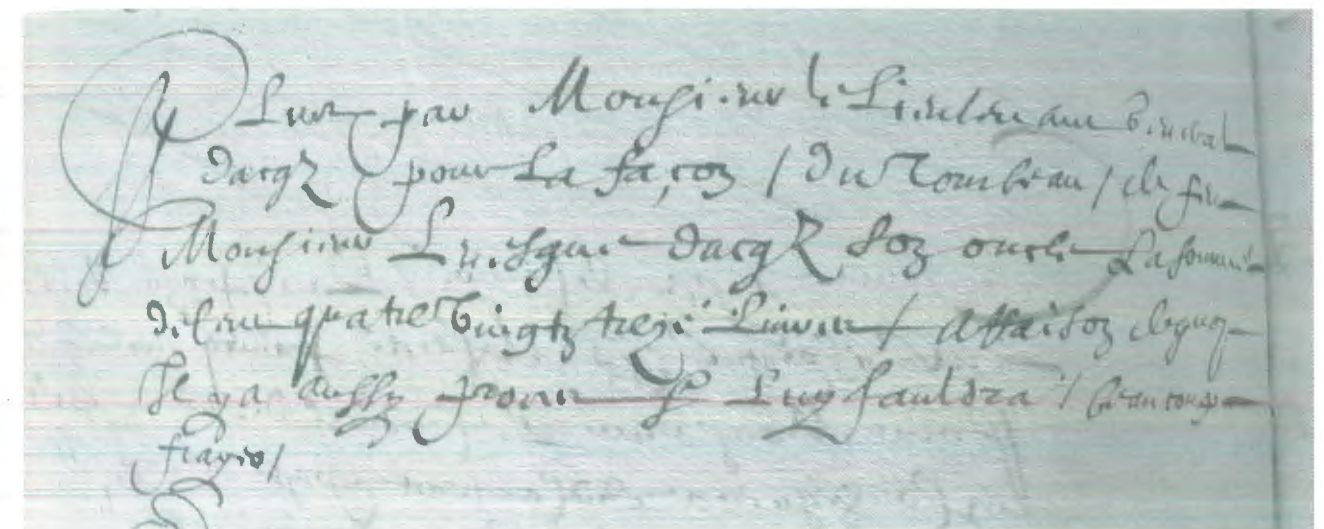 Plus par Monsieur le Lieutenant general
dacqz pour La façon / du Tombeau / de feu
Monsieur Levesque dacqz son oncle La somme
de cent quatre vingtz treze Livres / attaison dequoy
Il y a aussy proces Luy fauldra / beaucoup
frayer /